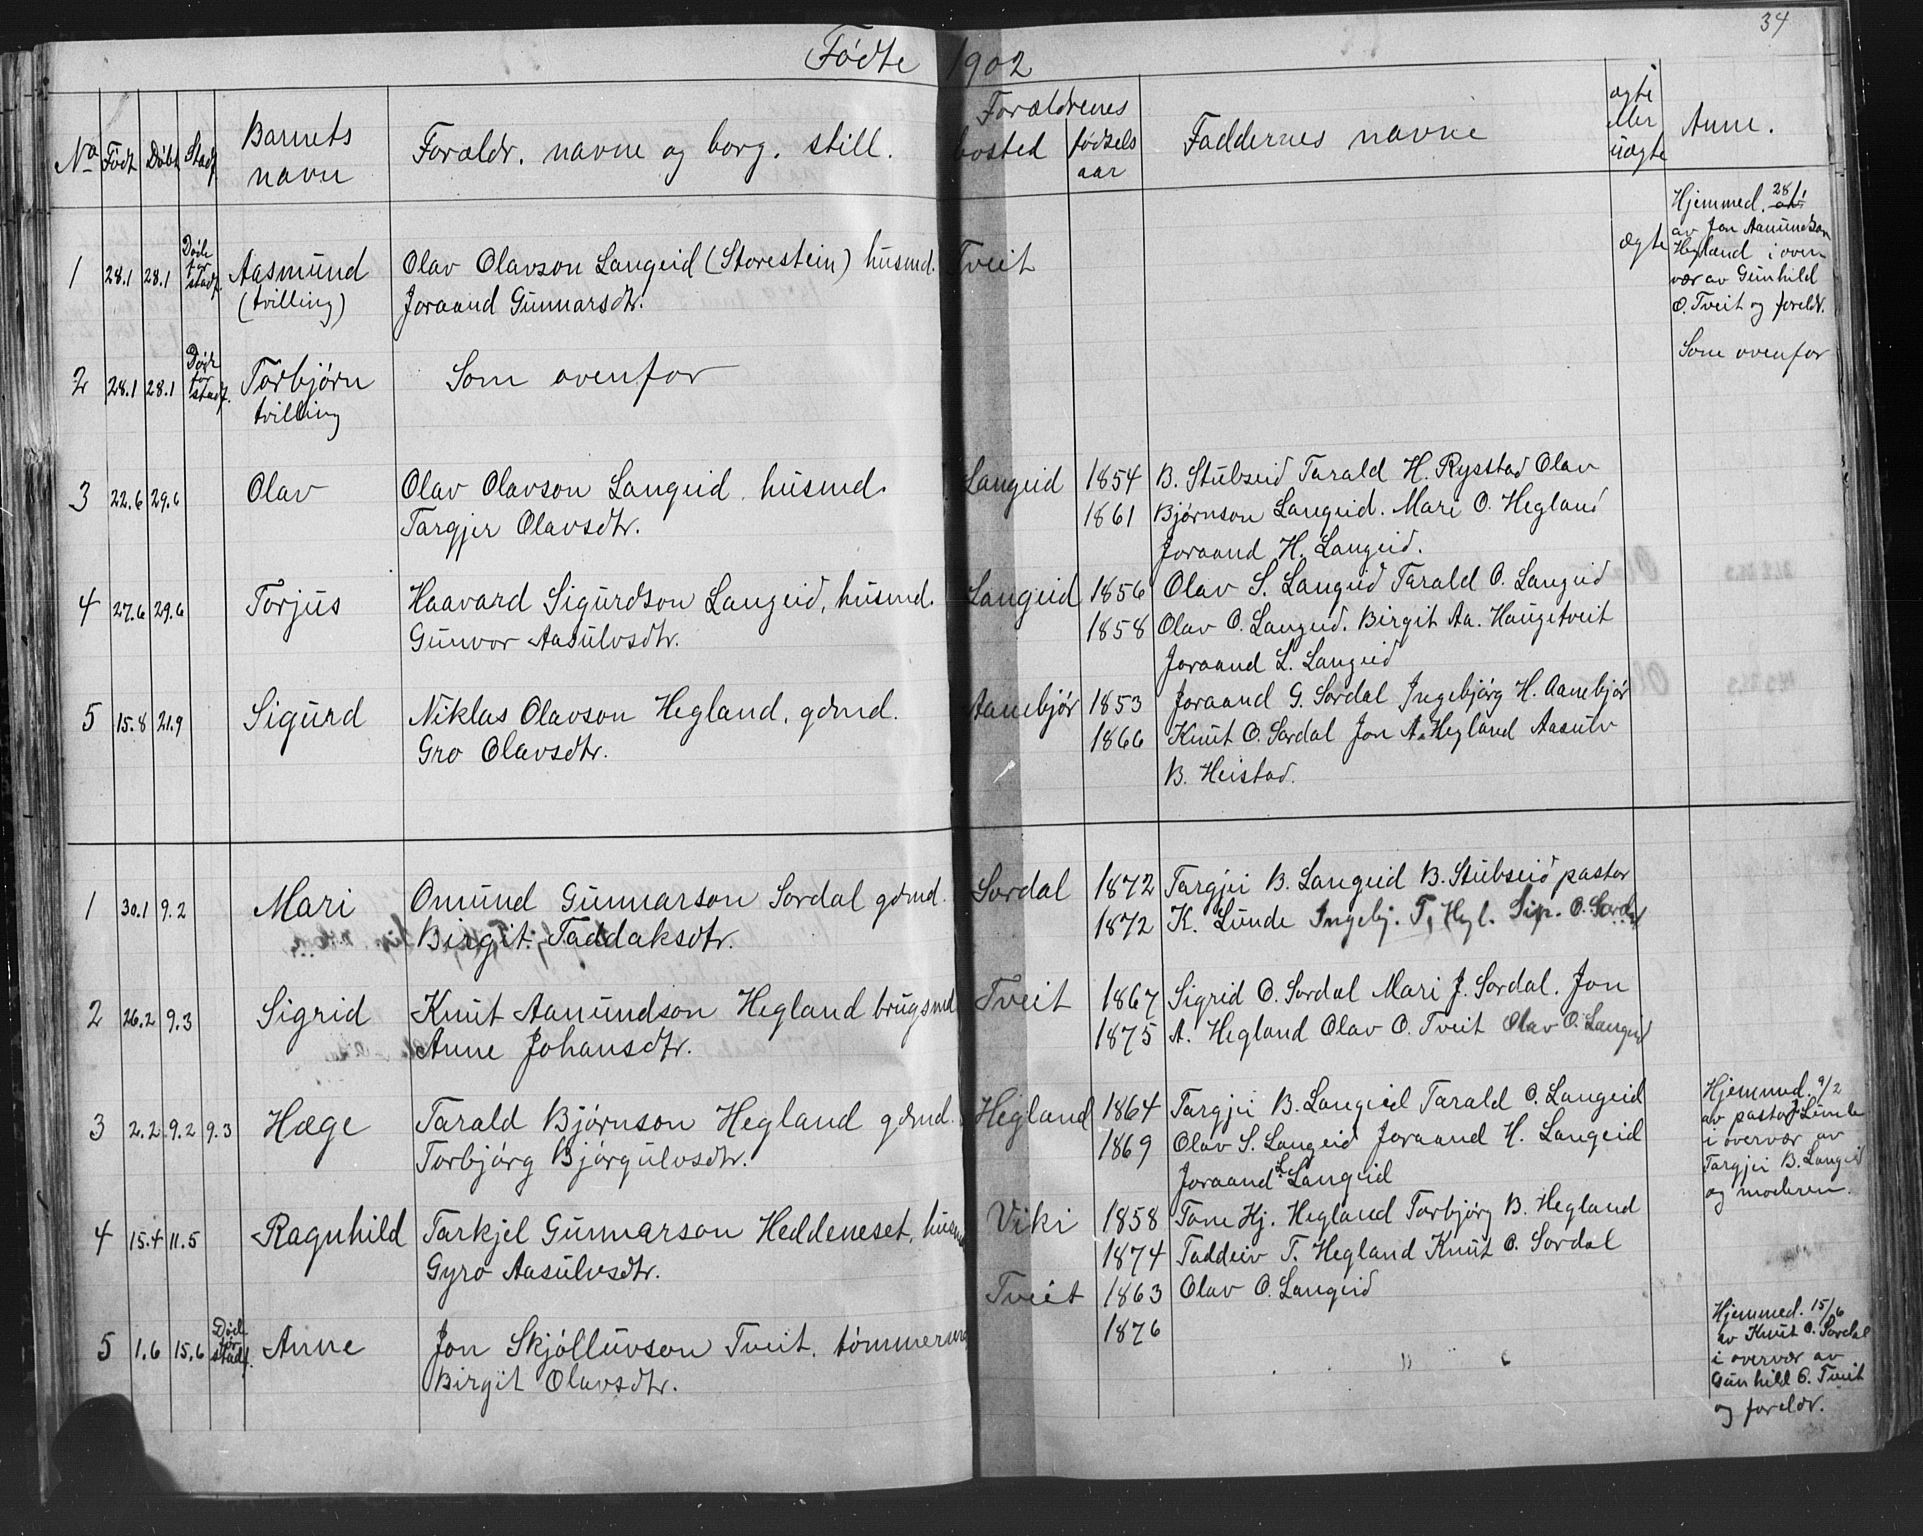 34
Fødte 1902
No Født Døbt Stadf. Barnets navn Forældr. navne og borg. still. Forældrenes bosted fødselsaar Faddernes navne ægte eller uægte Anm.
1 28.1 28.1 Død før stadf. Aasmund (tvilling) Olav Olavson Langeid (Storestein) husmd. Tveit ægte Hjemmed. 28/1
Joraand Gunnarsdtr. av Jon Aanundson
Hegland i over
vær av Gunhild
O. Tveit og foreldr.
2 28.1 28.1 Død før stadf. Torbjørn tvilling Som ovenfor Som ovenfor
3 22.6 29.6 Olav Olav Olavson Langeid. husmd. Langeid 1854 B. Stubseid Tarald H. Rysstad Olav
Targjer Olavsdtr. 1861 Bjørnson Langeid. Mari O. Hegland
Joraand H. Langeid.
4 27.6 29.6 Torjus Haavard Sigurdson Langeid, husmd. Langeid 1856 Olav S. Langeid Tarald O. Langeid
Gunvor Aasulvsdtr. 1858 Olav O. Langeid. Birgit Aa. Haugetveit
Joraand L. Langeid
5 15.8 21.9 Sigurd Niklas Olavson Hegland, gdmd. Aanebjør 1853 Joraand G. Sordal Ingebjørg H. Aanebjør
Gro Olavsdtr. 1866 Knut O. Sordal Jon A. Hegland Aasulv
B. Heistad.
1 30.1 9.2 Mari Omund Gunnarson Sordal gdmd. Sordal 1872 Targjei B. Langeid B. Stubseid pastor
Birgit Taddaksdtr. 1872 K. Lunde Ingebj. T. Hegl. Sig. O. Sordal
2 26.2 9.3 Sigrid Knut Aanundson Hegland brugsmd Tveit 1867 Sigrid O. Sordal Mari J. Sordal. Jon
Anne Johansdtr. 1875 A. Hegland Olav O. Tveit Olav O. Langeid
3 2.2 9.2 9.3 Hæge Tarald Bjørnson Hegland gdmd. Hegland 1864 Targjei B. Langeid Tarald O. Langeid Hjemmed. 9/2
Torbjørg Bjørgulvsdtr. 1869 Olav S. Langeid Joraand H. Langeid av pastor Lunde
Joraand L. Langeid i overvær av
Targjei B. Langeid
og moderen.
4 15.4 11.5 Ragnhild Tarkjel Gunnarson Heddeneset, husmd Viki 1858 Tone Hj. Hegland Torbjørg B. Hegland
Gyro Aasulvsdtr. 1874 Taddeiv T. Hegland Knut O. Sordal
Olav O. Langeid
5 1.6 15.6 Død før stadf. Anne Jon Skjølluvson Tveit. tømmerm Tveit 1863 Hjemmed. 15/6
Birgit Olavsdtr. 1876 av Knut O. Sordal
i overvær av
Gunhild O. Tveit
og foreldr.